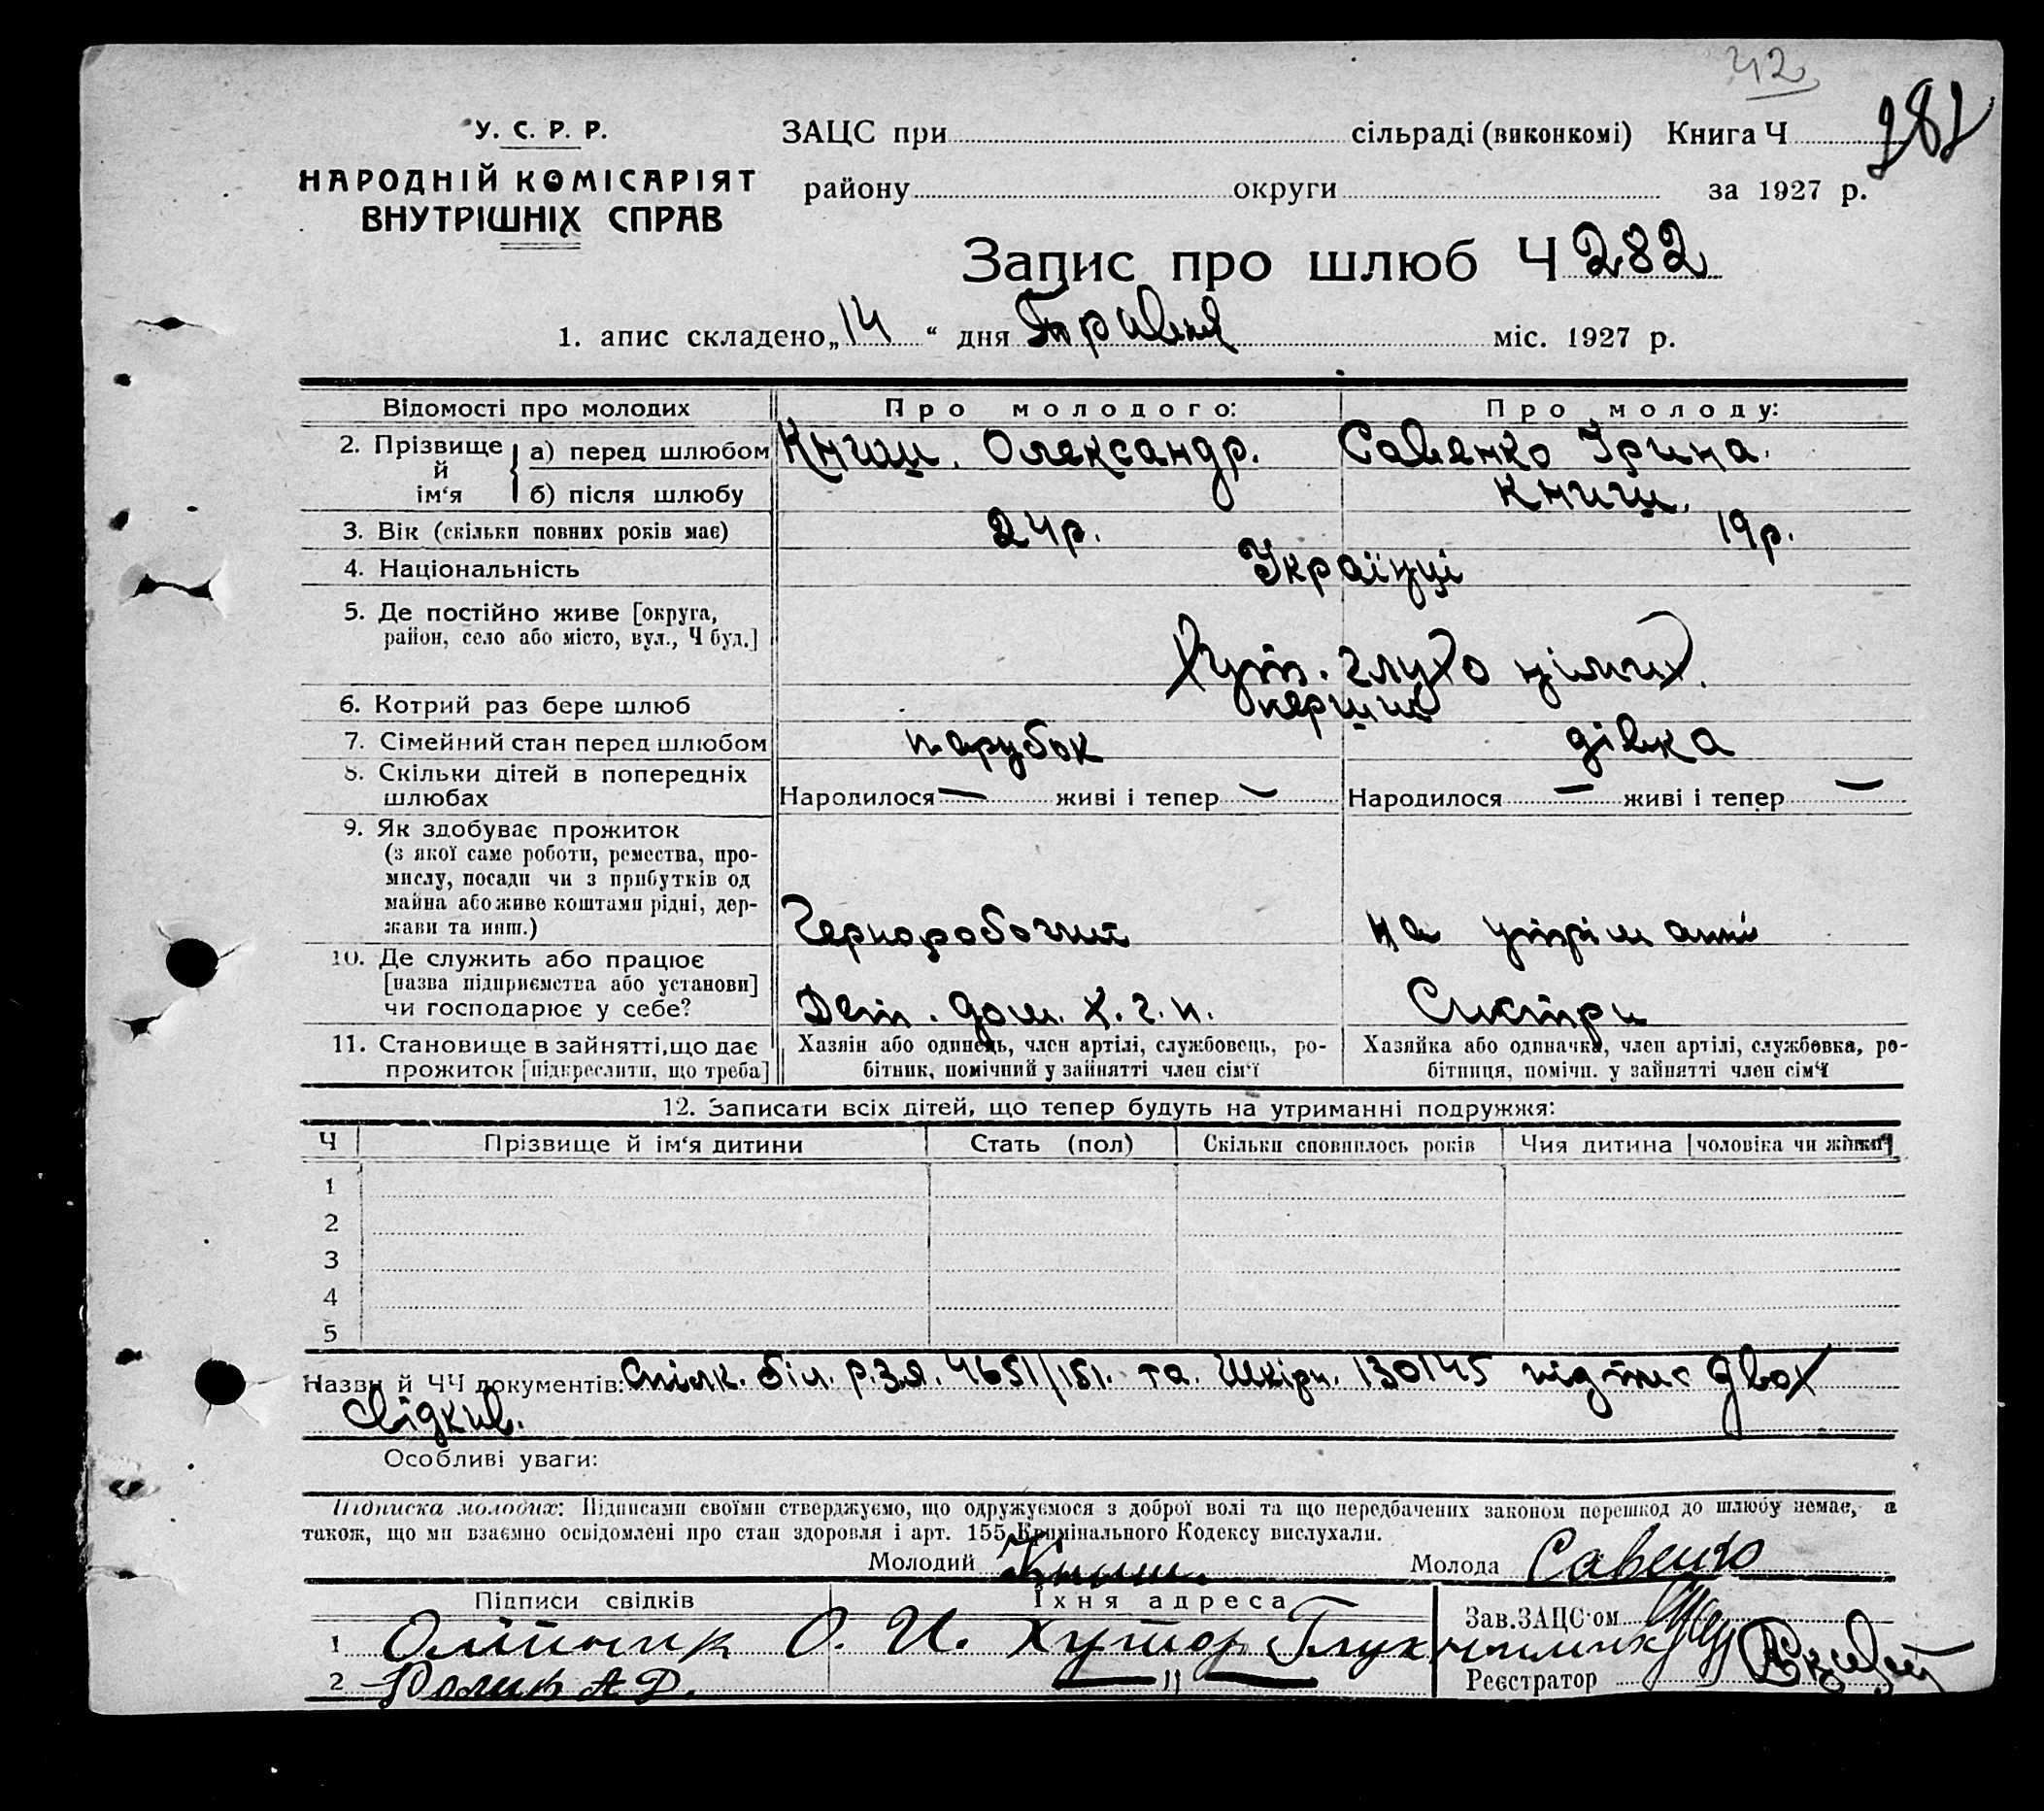 42
282
У. С. Р. Р.
НАРОДНІЙ КОМІСАРІЯТ
ВНУТРІШНІХ СПРАВ
ЗАЦС при сільраді (виконкомі) Книга Ч
району округи за 1927 р.
Запис про шлюб Ч 282
1. апис складено „14“ дня Травня міс. 1927 р.
Відомості про молодих Про молодого: Про молоду:
2. Прізвище й ім‘я а) перед шлюбом Книш. Олександр. Савенко Ірина.
б) після шлюбу Книш.
3. Вік (скільки повних років має) 24р. 19р.
4. Національність Українці
5. Де постійно живе [округа,
район, село або місто, вул., Ч буд.] Хут.
6. Котрий раз бере шлюб перший
7. Сімейний стан перед шлюбом парубок дівка
8. Скільки дітей в попередніх
шлюбах Народилося — живі і тепер — Народилося — живі і тепер —
9. Як здобуває прожиток
(з якої саме роботи, ремества, про-
мислу, посади чи з прибутків од
майна або живе коштами рідні, дер-
жави та инш.) Черноробочий на утріманні
10. Де служить або працює
[назва підприємства або установи]
чи господарює у себе? Дет. дом. Х.г.п. Систри
11. Становище в зайнятті, що дає
прожиток [підкреслити, що треба]
Хазяін або одинець, член артілі, службовець, ро-
бітник, помічний у зайнятті член сім‘ї
Хазяйка або одиначка, член артілі, службовка, ро-
бітниця, помічн. у зайнятті член сім‘ї
12. Записати всіх дітей, що тепер будуть на утриманні подружжя:
Ч Прізвище й ім‘я дитини Стать (пол) Скільки сповнилось років Чия дитина [чоловіка чи жінки]
1
2
3
4
5
Назви й ЧЧ документів: Спілк. біл. Р.З.Л. 4651/151. та. Шкірн. 130145 підпис двох
свідків.
Особливі уваги:
Підписка молодих: Підписами своїми стверджуємо, що одружуємося з доброї волі та що передбачених законом перешкод до шлюбу немає, а
також, що ми взаємно освідомлені про стан здоровля і арт. 155 Кримінального Кодексу вислухали.
Молодий Книш. Молода Савенко
Підписи свідків Їхня адреса Зав. ЗАЦС‘ом
1 Олійник О. И. Хутор
2 А Д. — " — Реєстратор